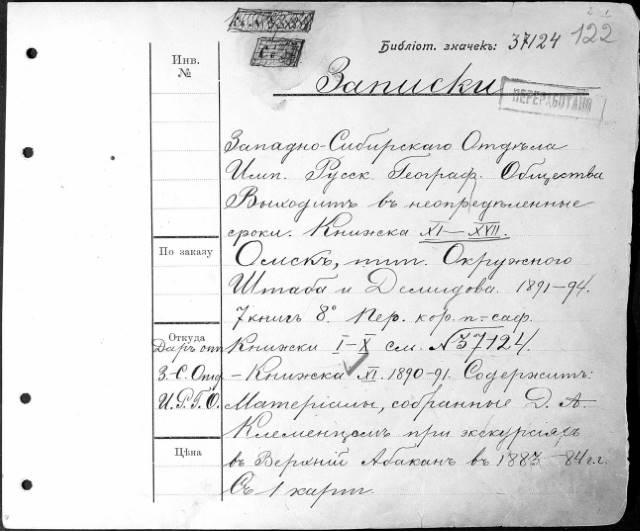 Библіот. значекъ: 37124
122
Записки
ПЕРЕРАБОТАНО
Инв.
№
Западно-Сибирскаго Отдѣла
Имп. Русск. Географ. Общества
Выходитъ въ неопредѣленные
сроки. Книжска XI–XVII.
По заказу
Омскъ, тип. Окружного
Штаба и Демидова. 1891-94.
7 книгъ 8°. Пер. кор. п-саф.
Откуда
Даръ отъ
З.-С. Отд
И.Р.Г.О.
Книжки I–X см. №37124.
– Книжска XI. 1890-91. Содержитъ:
Матеріалы, собранные Д. А.
Клеменцомъ при экскурсіяхъ
Цѣна
въ Верхній Абаканъ въ 1883-84 гг.
Съ 1 карт.